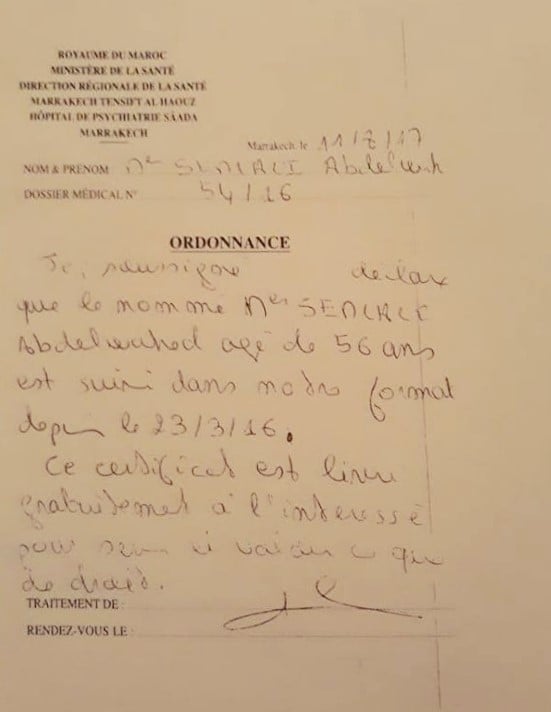 ROYAUME DU MAROC
MINISTÈRE DE LA SANTÉ
DIRECTION RÉGIONALE DE LA SANTÉ
MARRAKECH TENSIFT AL HAOUZ
HÔPITAL DE PSYCHIATRIE SÂADA
MARRAKECH
Marrakech, le
NOM & PRÉNOM
DOSSIER MÉDICAL N° 54/16
ORDONNANCE
Je, soussigné
que le nommé
Abdelwahed agé de 56 ans
est suivi dans
depuis le 23/3/16.
Ce certificat est livré
gratuitement à l'interessé
pour servir et valoir ce que
de droit.
TRAITEMENT DE :
RENDEZ-VOUS LE :